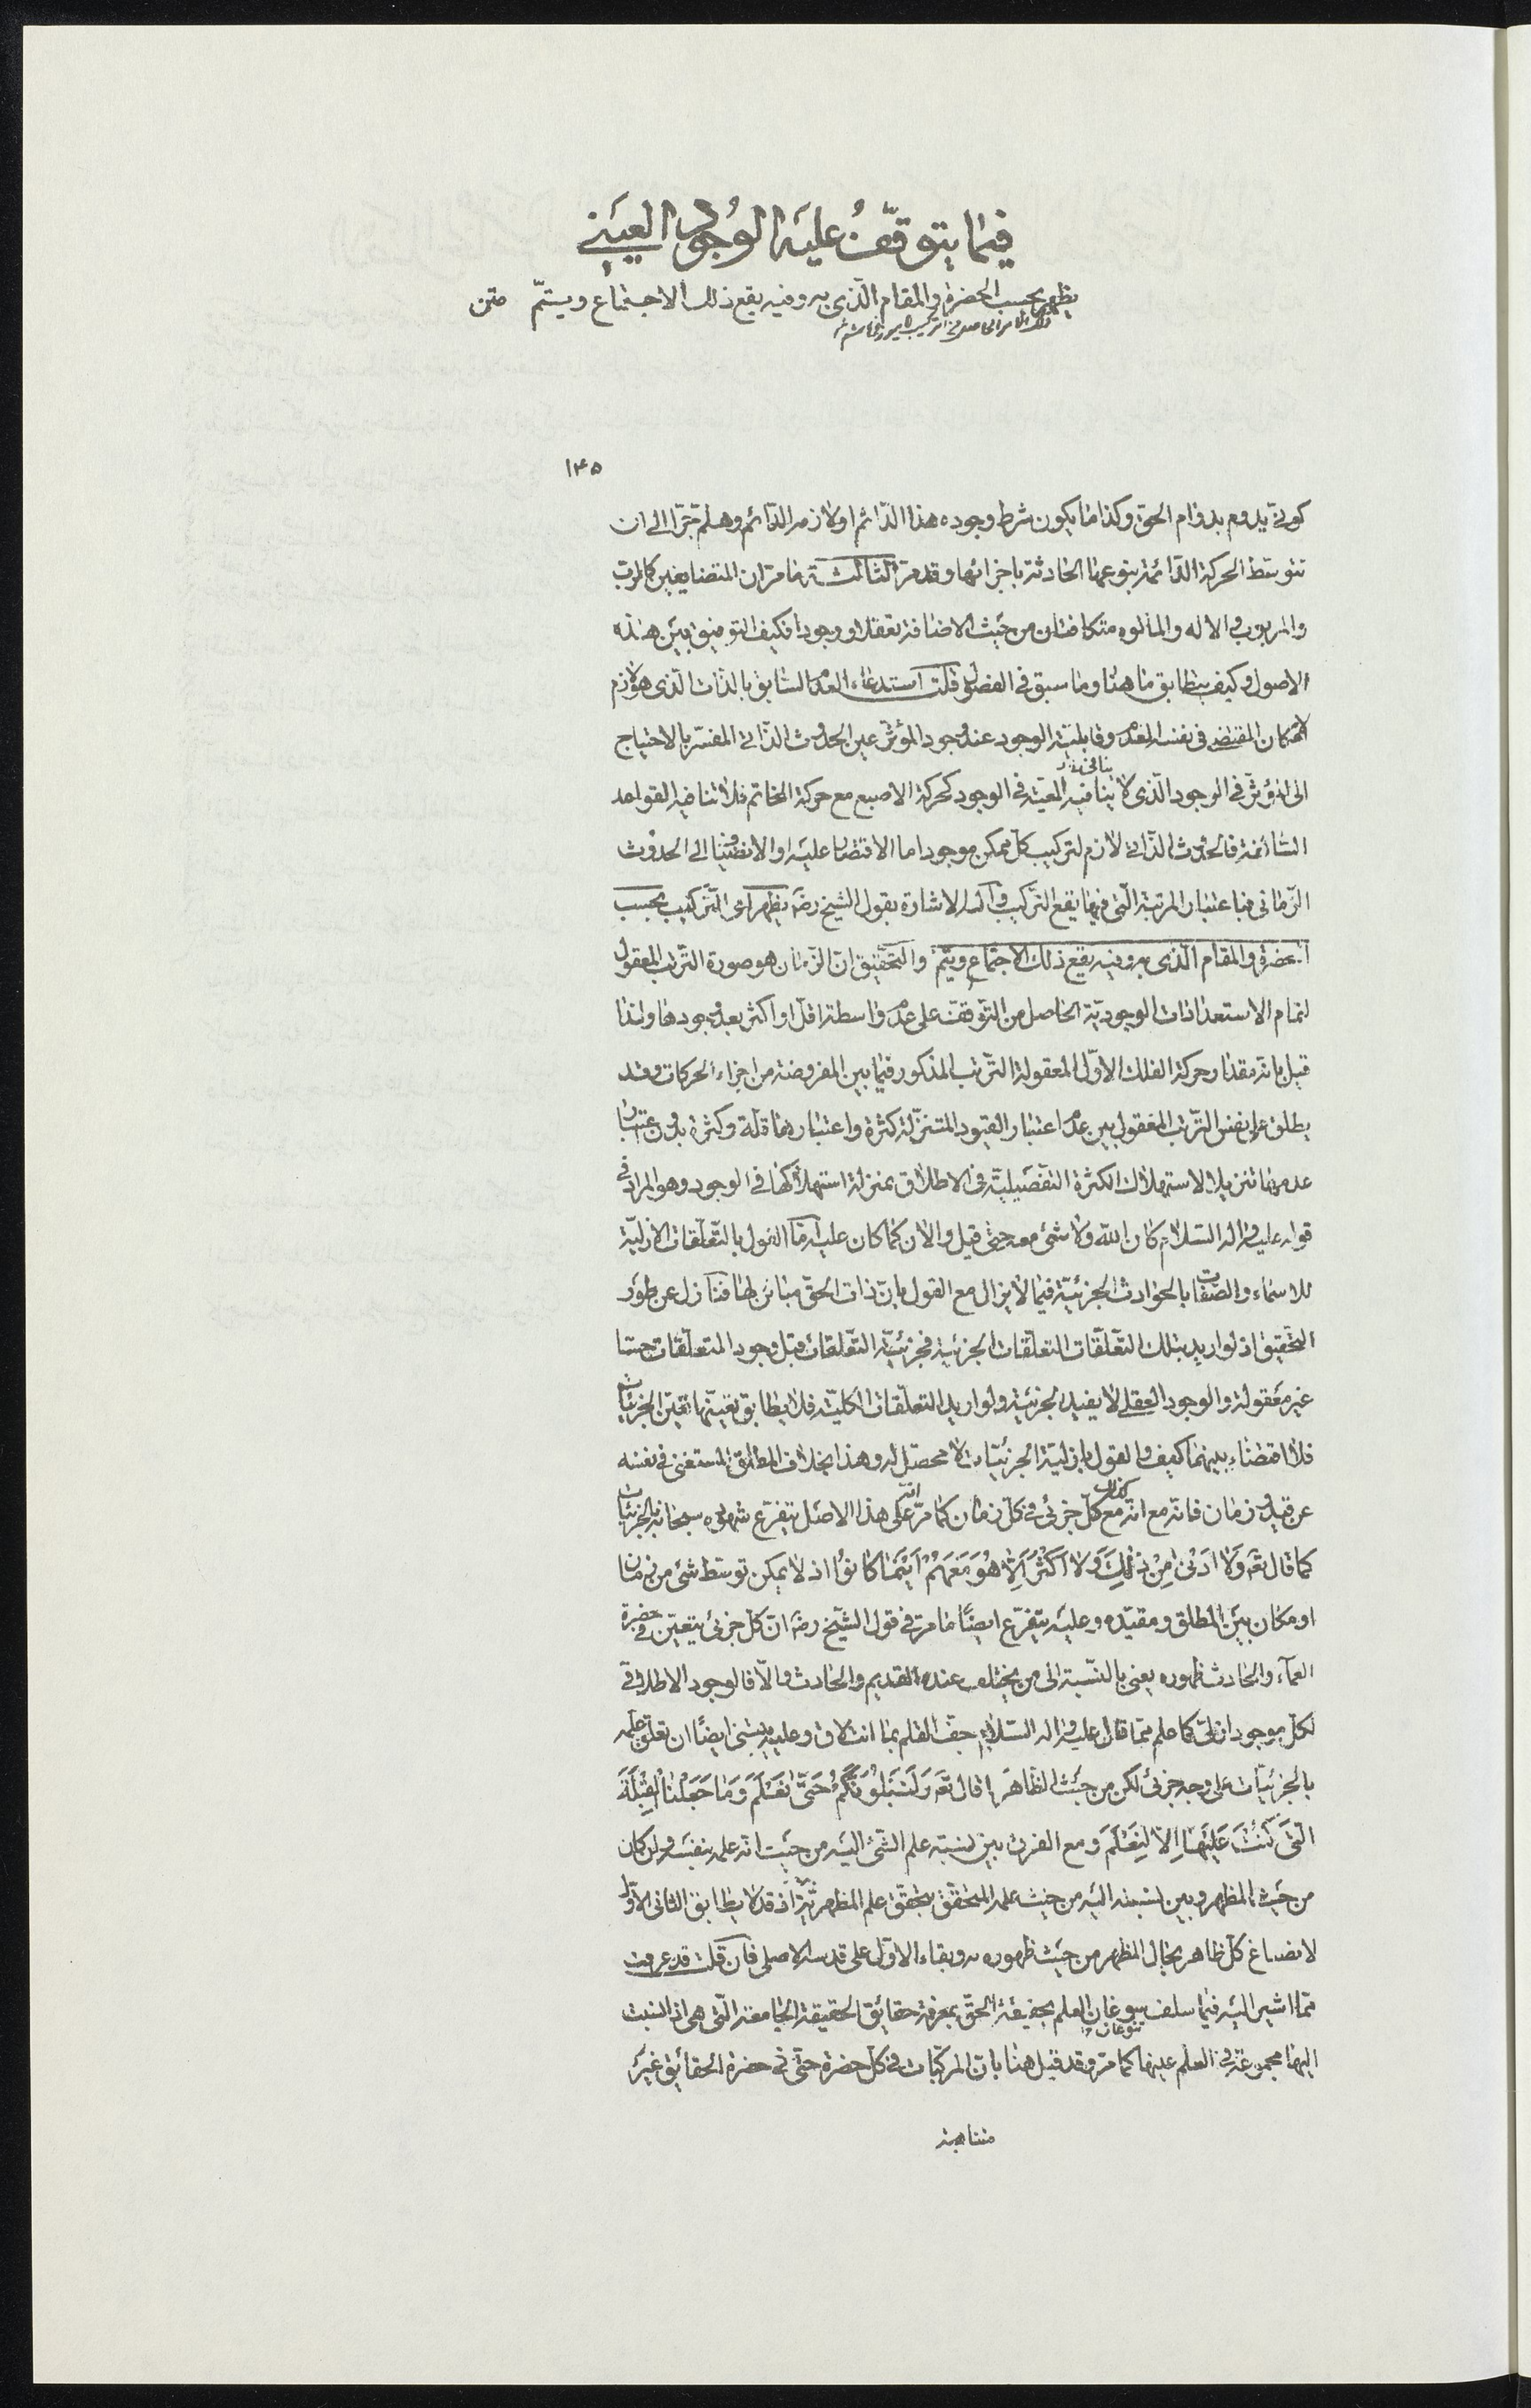 فيما يتوقّف عليه الوُجود العيني
يظهر بحسب الحضرة والمقام الّذى به وفيه يقع ذلك الاجتماع ويستمّ متن
١٤٥
كونى يدوم بدوام الحق وكذا ما يكون شرط وجوده هذا الدّائم او لازم الدّائم وهلمّ جرّا الى ان
تتوسّط الحركة الدّائمة بنوعها الحادثة باجزائها وقد مرّ الثالثة ما مرّ ان المتضايفين كالربّ
والمربوب والاله والمألوه متكافئان من حيث الاضافة تعقلا ووجودا فكيف التوفيق بين هذه
الاصول وكيف يتطابق ما هنا وما سبق فى الفصول قلت استدعاء العدم السّابق بالذّات الّذى هو لازم
الامكان المقتضى فى نفسه العدم وقابليّة الوجود عند وجود المؤثر عين الحدوث الذّاتى المفسّر بالاحتياج
الى المؤثّر فى الوجود الّذى لا ينافيه المعيّة فى الوجود كحركة الاصبع مع حركة الخاتم فلا تنافيه القواعد
السّالفة فالحدوث الذّاتى لازم لتركيب كلّ ممكن موجود اما الاقتصار عليه او الانضمام الى الحدوث
الزّمانى فباعتبار المرتبة الّتى فيها يقع التّركيب واليه الاشارة بقول الشيخ رضه يظهر اى التّركيب بحسب
الحضرة والمقام الّذى به وفيه يقع ذلك الاجتماع ويتمّ والتّحقيق انّ الزّمان هو صورة التّرتب المعقول
لتمام الاستعدادات الوجوديّة الحاصل من التّوقّف على عدم واسطة اقلّ او اكثر بعد وجودها ولذا
قيل بانه مقدار حركة الفلك الاوّل المعقولة التّرتب المذكور فيما بين المفروضة من اجزاء الحركات وقد
يطلق على نفس التّرتب المعقول بين عدم اعتبار القيود المتنزّلة كثرة واعتبارها قلّة وكثرة بدون اعتبار
عدمها تنزيلا لاستهلاك الكثرة التّفصيليّة فى الاطلاق بمنزلة استهلاكها فى الوجود وهو المراد فى
قوله عليه واله السّلام كان اللّه ولا شئ معه حتّى قيل والان كما كان عليه امّا القول بالتّعلّقات الازليّة
للاسماء والصّفات بالحوادث الجزئيّة فيما لا يزال مع القول بانّ ذات الحقّ مباين لها فنازل عن طور
التّحقيق اذ لو اريد بتلك التّعلّقات التعلّقات الجزئية فجزئيّة التّعلقات قبل وجود المتعلّقات حسّا
غير معقولة والوجود العقلى لا يفيد الجزئيّة ولو اريد التعلّقات الكليّة فلا يطابق تعيّنها تعيّن الجزئيّات
فلا اقتضاء بينهما كيف والقول بازليّة الجزئيّات لا محصّل له وهذا بخلاف المطلق المستغنى فى نفسه
عن قيد زمان فانه مع انّه مع كلّ جزئى فى كلّ زمان كما مرّ على هذا الاصل يتفرّع شهوده سبحانه بالجزئيّات
كما قال تعَ وَلا اَدْنى مِنْ ذلِكَ وَلا اَكْثَرَ اِلّا هُوَ مَعَهُمْ اَيْنَما كانُوا اذ لا يمكن توسّط شئ من زمان
او مكان بين المطلق ومقيّده وعليه يتفرّع ايضًا ما مرّ فى قول الشّيخ رضه انّ كلّ جزئى يتعيّن فى حضرة
العمآء والحادث ظهوره يعنى بالنّسبة الى من يختلف عنده القديم والحادث والّا فالوجود الاطلاقى
لكلّ موجود ازلىّ كما علم ممّا قال عليه واله السّلام جفّ القلم بما انت لاق وعليه يبتنى ايضًا ان تعلّق علمه
بالجزئيّات على وجه جزئى لكن من حيث الظّاهر ما قال تعَ وَلَنَبْلُوَنَّكُمْ حَتَّى نَعْلَمَ وَما جَعَلْنَا الْقِبْلَةَ
الَّتى كُنْتَ عَلَيْها اِلّا لِنَعْلَمَ ومع الفرق بين نسبة علم الشّئ اليه من حيث انّه علمه بنفسه وان كان
من حيث المظهر وبين نسبته اليه من حيث علمه المتحقّق بتحقّق علم المظهر به اذ قد لا يطابق الثانى الاوّل
لانصباغ كلّ ظاهر بحال المظهر من حيث ظهوره به وبقاء الاوّل على قدسه الاصلى فان قلت قد عرفت
ممّا اشير اليه فيما سلف سوغان العلم بحقيقة الحقّ بمعرفة حقائق الحقيقة الجامعة الّتى هى اذا نسبت
اليها مجموعة فى العلم عينها كما مرّ وقد قيل هنا بانّ المركّبات فى كلّ حضرة حتّى فى حضرة الحقائق غير
متناهية